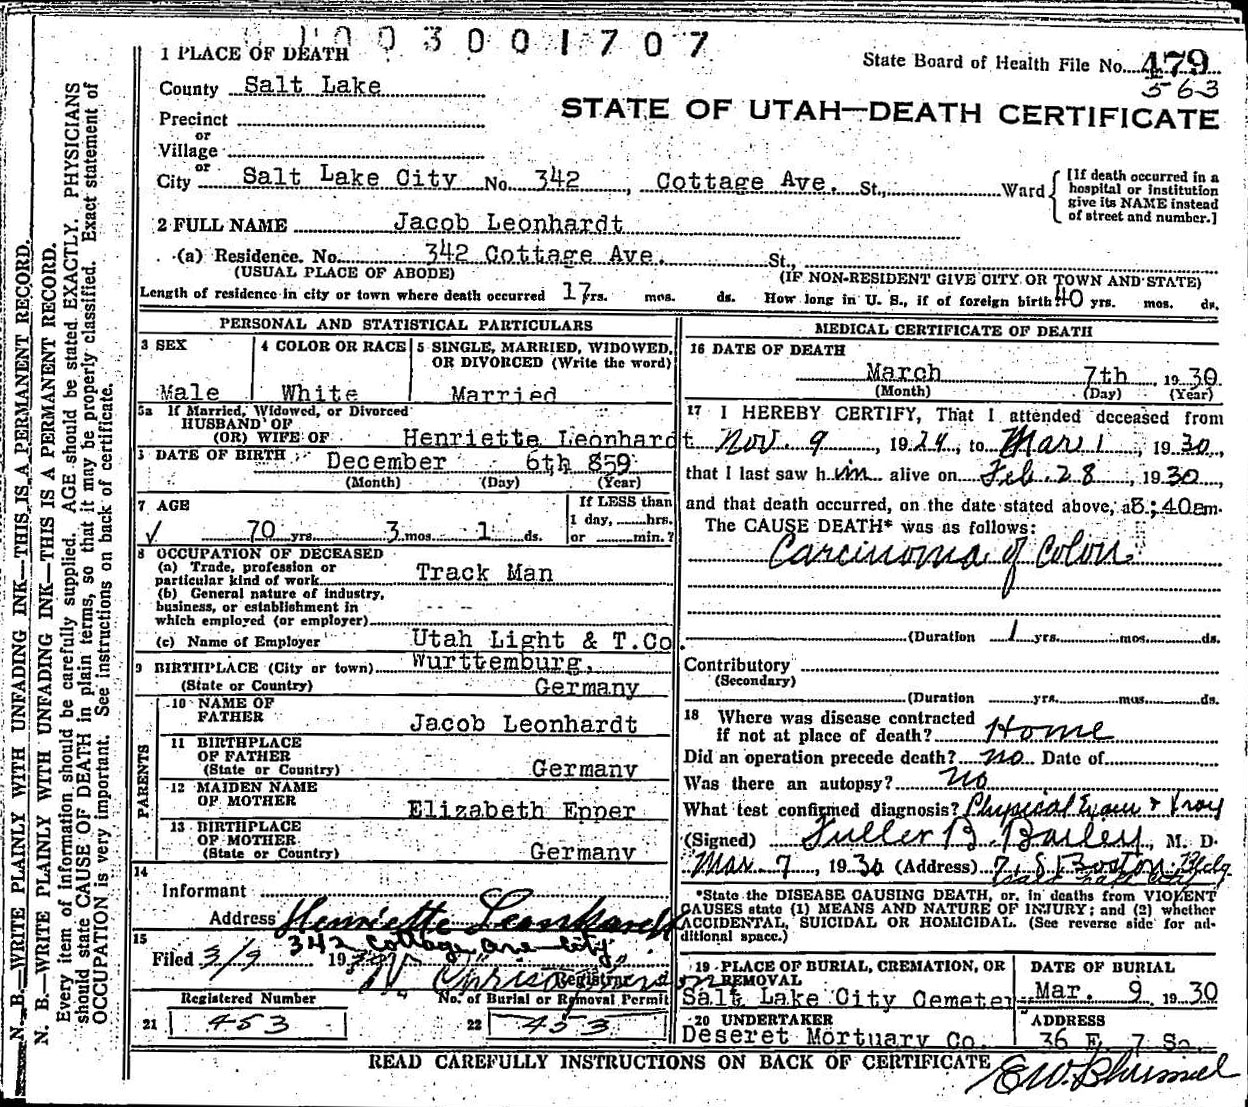 1003001707
1 PLACE OF DEATH
State Board of Health File No. 479
563
County Salt Lake
STATE OF UTAH—DEATH CERTIFICATE
Precinct
or
Village
or
City Salt Lake City No. 342, Cottage Ave. St., Ward
[If death occurred in a hospital or institution give its NAME instead of street and number.]
2 FULL NAME Jacob Leonhardt
(a) Residence. No. 342 Cottage Ave. St.,
(USUAL PLACE OF ABODE) (IF NON-RESIDENT GIVE CITY OR TOWN AND STATE)
Length of residence in city or town where death occurred 17 yrs. mos. ds. How long in U. S., if of foreign birth? 40 yrs. mos. ds.
PERSONAL AND STATISTICAL PARTICULARS
3 SEX
Male
4 COLOR OR RACE
White
5 SINGLE, MARRIED, WIDOWED,
OR DIVORCED (Write the word)
Married
5a If Married, Widowed, or Divorced
HUSBAND OF
(OR) WIFE OF Henriette Leonhardt
DATE OF BIRTH December 6th 859
(Month) (Day) (Year)
7 AGE
√ 70 yrs. 3 mos. 1 ds.
If LESS than
1 day, hrs.
or min.?
8 OCCUPATION OF DECEASED
(a) Trade, profession or
particular kind of work Track Man
(b) General nature of industry,
business, or establishment in
which employed (or employer) -- --
(c) Name of Employer Utah Light & T.Co.
9 BIRTHPLACE (City or town) Wurttemburg,
(State or Country) Germany
PARENTS
10 NAME OF
FATHER Jacob Leonhardt
11 BIRTHPLACE
OF FATHER
(State or Country) Germany
12 MAIDEN NAME
OF MOTHER Elizabeth Epper
13 BIRTHPLACE
OF MOTHER
(State or Country) Germany
14
Informant
Address Henriette Leonhardt
342 Cottage Ave City
15
Filed 3/9 19
Registrar
Registered Number
21 453
No. of Burial or Removal Permit
22 453
MEDICAL CERTIFICATE OF DEATH
16 DATE OF DEATH
March 7th, 1930
(Month) (Day) (Year)
17 I HEREBY CERTIFY, That I attended deceased from
Nov. 9, 1924, to Mar 1, 1930,
that I last saw him alive on Feb. 28, 1930,
and that death occurred, on the date stated above, a8;40am.
The CAUSE DEATH* was as follows:
Carcinoma of Colon
(Duration 1 yrs. mos. ds.
Contributory
(Secondary)
(Duration yrs. mos. ds.
18 Where was disease contracted
if not at place of death? Home
Did an operation precede death? no Date of
Was there an autopsy? No
What test confirmed diagnosis? Physical Exam & Xray
(Signed) Fuller B. Bailey, M. D.
Mar 7, 1930 (Address) Boston Bldg
Salt Lake City
*State the DISEASE CAUSING DEATH, or, in deaths from VIOLENT
CAUSES state (1) MEANS AND NATURE OF INJURY; and (2) whether
ACCIDENTAL, SUICIDAL OR HOMICIDAL. (See reverse side for ad-
ditional space.)
19 PLACE OF BURIAL, CREMATION, OR
REMOVAL
Salt Lake City Cemeter
DATE OF BURIAL
Mar. 9 1930
20 UNDERTAKER
Deseret Mortuary Co.
ADDRESS
36 E. 7 So.
READ CAREFULLY INSTRUCTIONS ON BACK OF CERTIFICATE
N. B.—WRITE PLAINLY WITH UNFADING INK—THIS IS A PERMANENT RECORD.
N. B.—WRITE PLAINLY WITH UNFADING INK—THIS IS A PERMANENT RECORD.
Every item of information should be carefully supplied. AGE should be stated EXACTLY. PHYSICIANS
should state CAUSE OF DEATH in plain terms, so that it may be properly classified. Exact statement of
OCCUPATION is very important. See instructions on back of certificate.